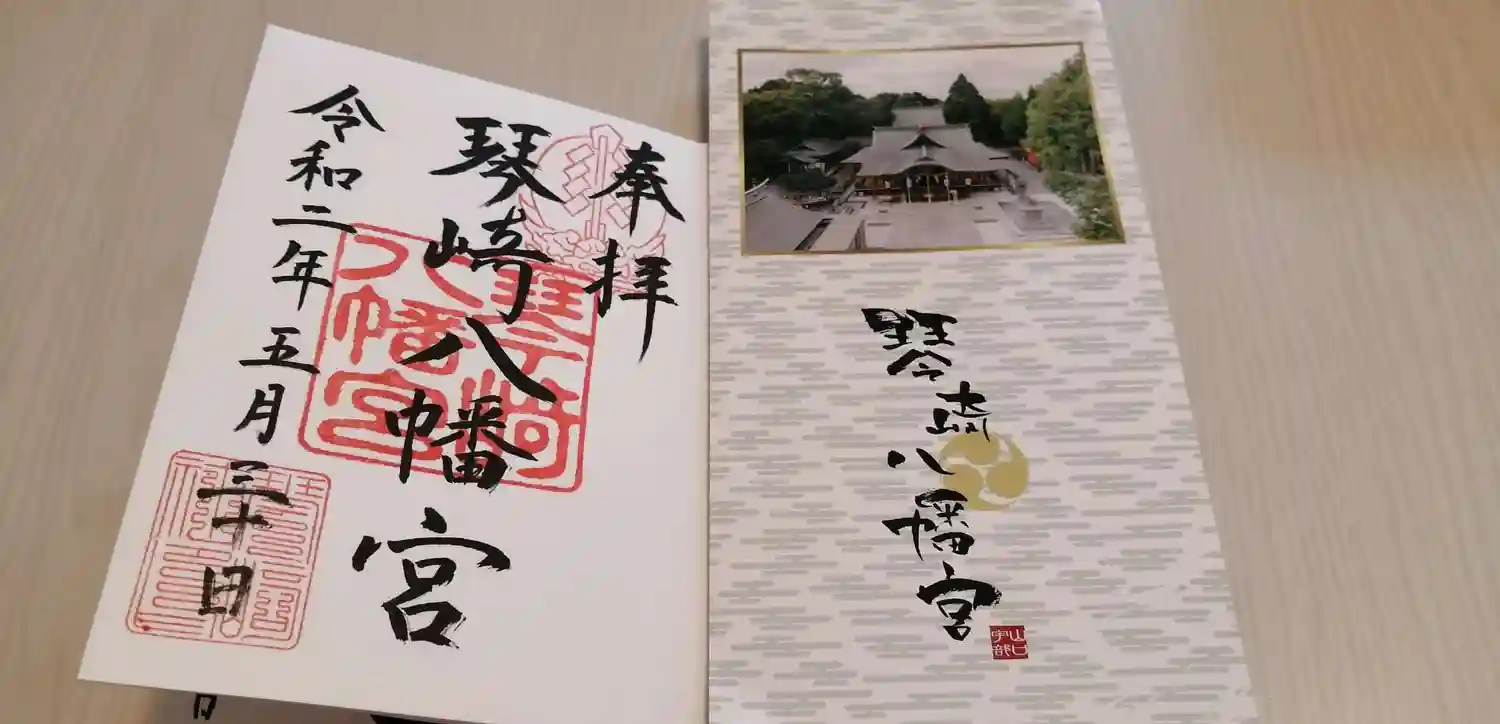 奉拝
琴崎八幡宮
令和二年五月三十日
琴崎
八幡宮
琴崎八幡宮
山口
宇部